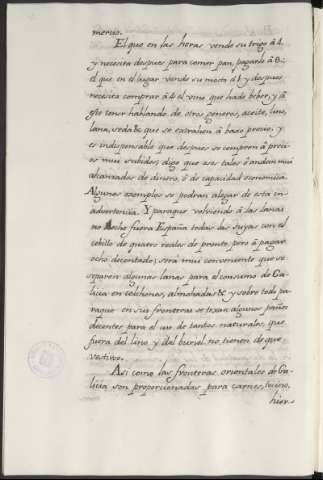 mercio.
El que en las horas vende su trigo à 4.
y necesita despues para comer pan, pagarlo à 8.;
el que en el lugar vende su mosto à 1. y despues
necesita comprar à 4 el vino que ha de beber, y à
este tenor hablando de otros generos, aceite, lino,
lana, seda &c que se extrahen à baxo precio, y
es indispensable que despues se compren à preci-
os mui subidos; digo que esos tales ò andan mui
alcanzados de dinero, ò de capacidad economica.
Algunos exemplos se podran alegar de esta in-
advertencia. Y paraque volviendo à las lanas
no eche fuera España todas las suyas con el
cebillo de quatro reales de pronto, pero à pagar
ocho decontado; serà mui conveniente que se
separen algunas lanas para el consumo de Ga-
licia en colchones, almohadas &c y sobre todo pa-
raque en sus fronteras se texan algunos paños
decentes para el uso de tantos naturales, que
fuera del lino y del buriel no tienen de que
vestirse.
Asi como las fronteras orientales de Ga-
licia son proporcionadas para carnes, tocino,
hier-